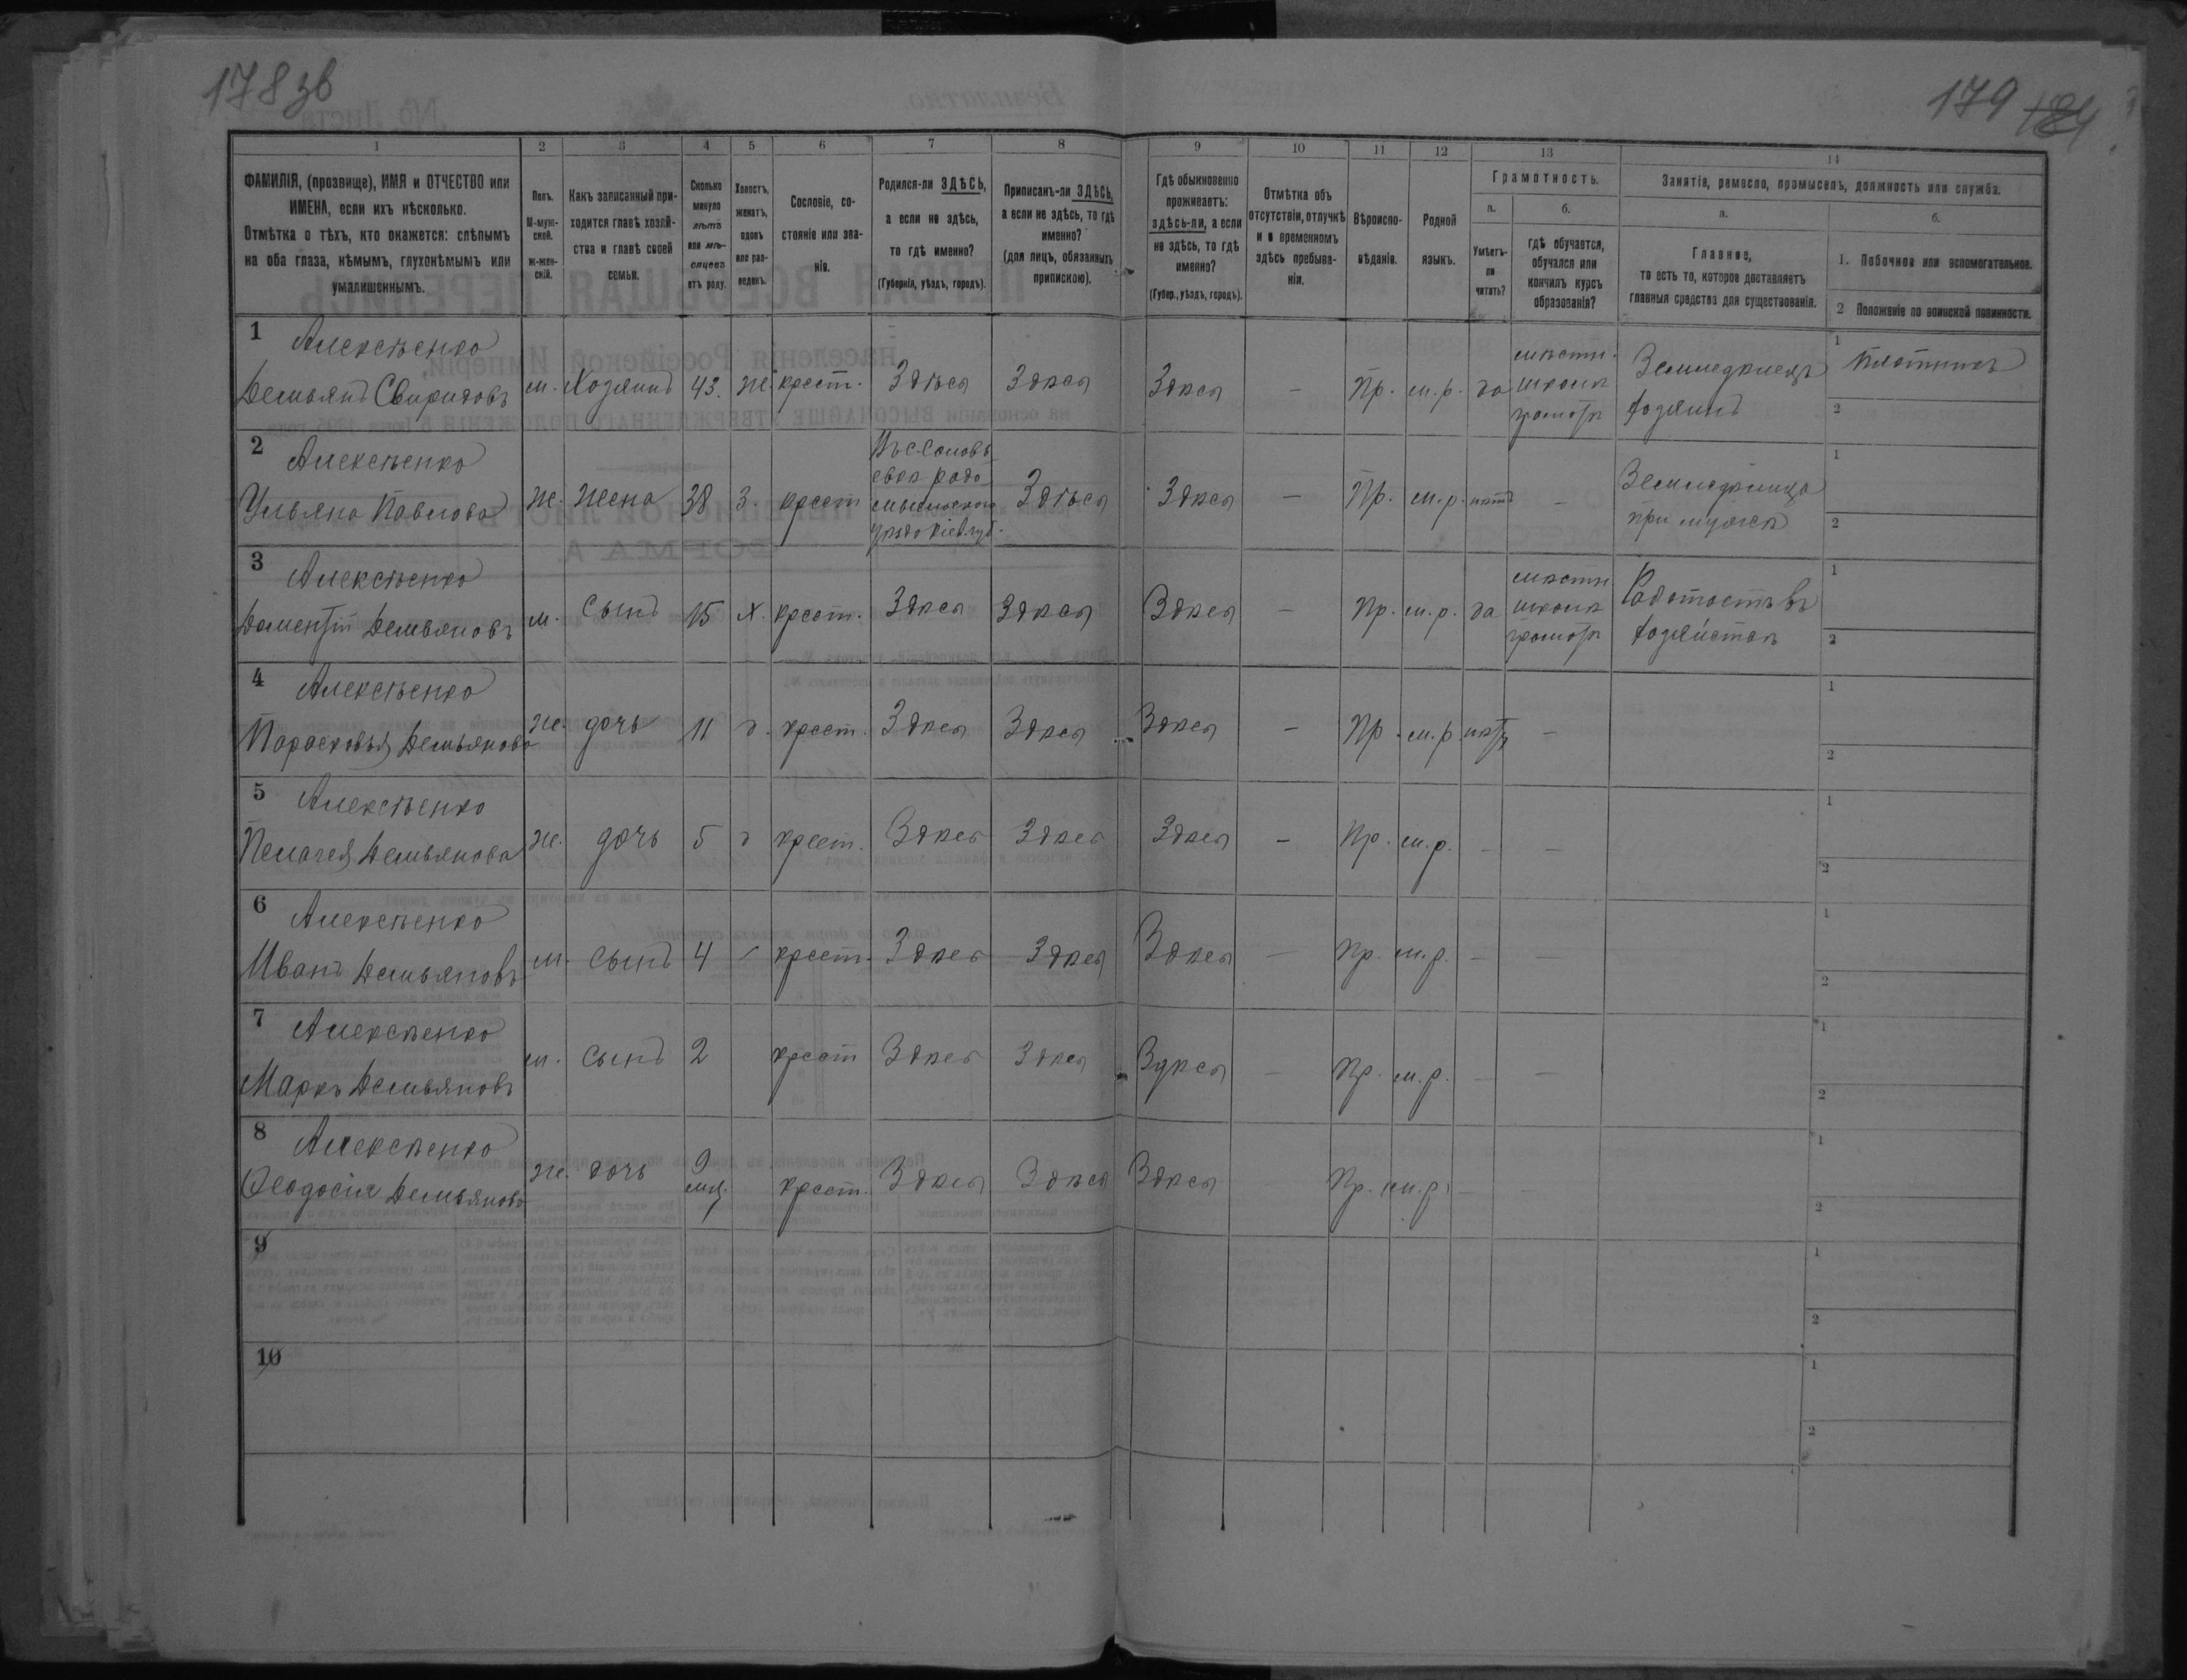 178 зв
179 184
1 2 3 4 5 6 7 8 9 10 11 12 13 14
ФАМИЛІЯ, (прозвище), ИМЯ и ОТЧЕСТВО или
ИМЕНА, если ихъ нѣсколько.
Отмѣтка о тѣхъ, кто окажется: слѣпымъ
на оба глаза, нѣмымъ, глухонѣмымъ или
умалишеннымъ.
Полъ.
М-муж-
ской.
ж-жен-
скій.
Какъ записанный при-
ходится главѣ хозяй-
ства и главѣ своей
семьи.
Сколько
минуло
лѣтъ
или мѣ-
сяцевъ
отъ роду.
Холостъ,
женатъ,
вдовъ
или раз-
веденъ.
Сословіе, со-
стояніе или зва-
ніе.
Родился-ли ЗДѢСЬ,
а если не здѣсь,
то гдѣ именно?
(Губернія, уѣздъ, городъ).
Приписанъ-ли ЗДѢСЬ,
а если не здѣсь, то гдѣ
именно?
(для лицъ, обязанныхъ
припискою).
Гдѣ обыкновенно
проживаетъ:
здѣсь-ли, а если
не здѣсь, то гдѣ
именно?
(Губер., уѣздъ, городъ).
Отмѣтка объ
отсутствіи, отлучкѣ
и о временномъ
здѣсь пребыва-
ніи.
Вѣроиспо-
вѣданіе.
Родной
языкъ.
Грамотность.
а.
Умѣетъ-
ли
читать?
б.
гдѣ обучается,
обучался или
кончилъ курсъ
образованія?
Занятіе, ремесло, промыселъ, должность или служба.
а.
Главное,
то есть то, которое доставляетъ
главныя средства для существованія.
б.
1. Побочное или вспомогательное.
2 Положеніе по воинской повинности.
1 Алексѣенко
Демьянъ Свиридовъ м. Хозяинъ 43. Ж. крест. Здѣсь Здѣсь Здѣсь – Пр. м. р. да
мѣстн.
школѣ
грамотѣ
Земледѣлецъ
хозяинъ
1 Плотникъ
2
2 Алексѣенко
Ульяна Павлова ж. жена 38 З. крест
Радо-
мысльскаго
уѣзда Кіев. губ.
Здѣсь Здѣсь – Пр. м. р. нѣтъ –
Земледѣлица
при мужѣ
1
2
3 Алексѣенко
Дементій Демьяновъ м. сынъ 15 Х. крест. Здѣсь Здѣсь Здѣсь – Пр. м. р. да
мѣстн.
школѣ
грамотѣ
въ
1
2
4 Алексѣенко
Парасковья Демьянова ж. дочь 11 д. крест. Здѣсь Здѣсь Здѣсь – Пр. м. р. нѣтъ –
1
2
5 Алексѣенко
Пелагея Демьянова ж. дочь 5 д крест. Здѣсь Здѣсь Здѣсь – Пр. м. р. – –
1
2
6 Алексѣенко
Иванъ Демьяновъ м. сынъ 4 – крест. Здѣсь Здѣсь Здѣсь – Пр. м. р. – –
1
2
7 Алексѣенко
Маркъ Демьяновъ м. сынъ 2 крест Здѣсь Здѣсь Здѣсь – Пр. м. р. – –
1
2
8 Алексѣенко
Ѳеодосія Демьянова ж. дочь 9 мц. крест. Здѣсь Здѣсь Здѣсь Пр. м. р. –
1
2
9
1
2
10
1
2